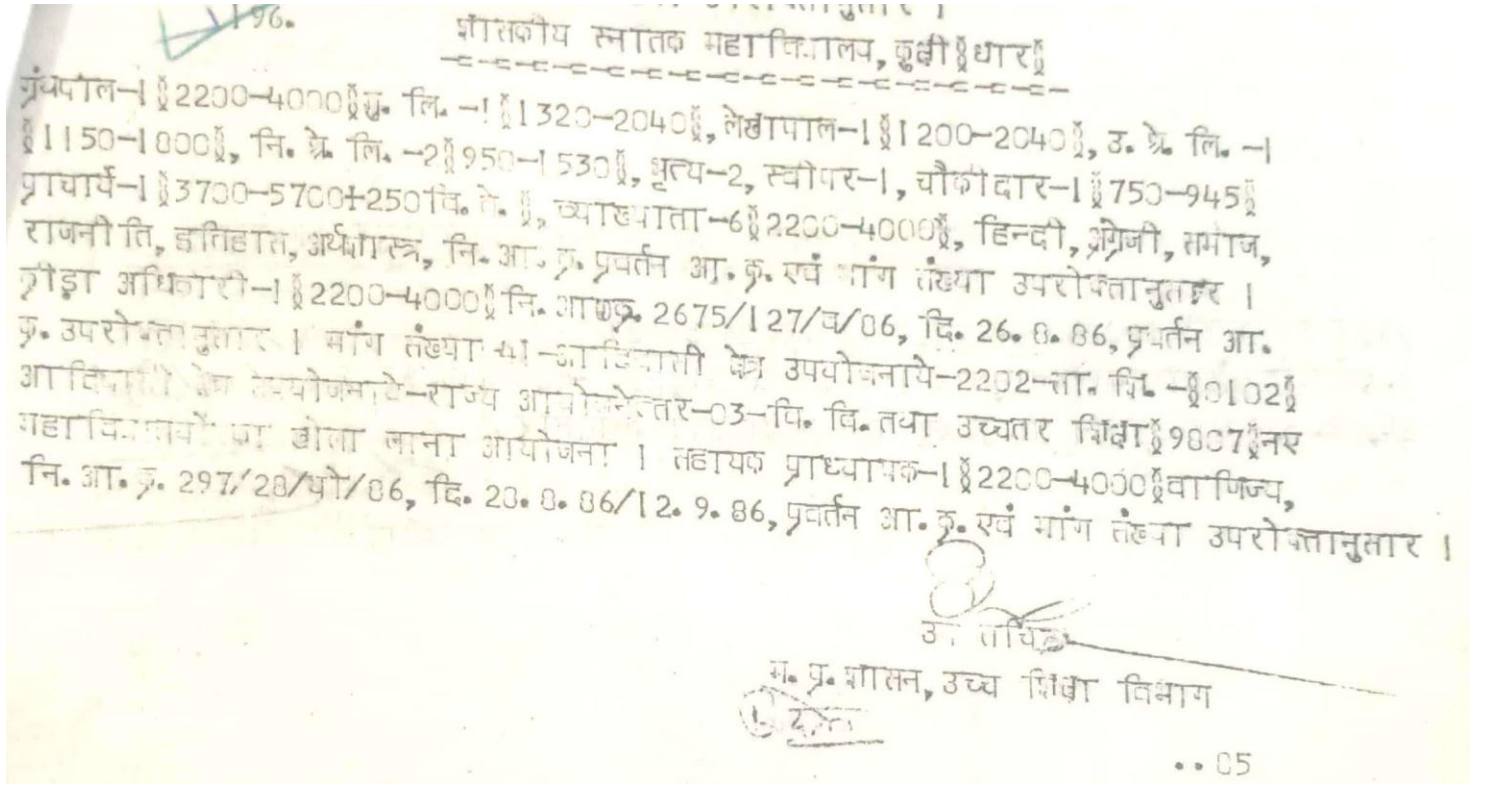 196.
शासकीय स्नातक महाविद्यालय, कुक्षी §धार§
ग्रंथपाल-1 §2200-4000§ मु. लि. -1 §1320-2040§, लेखापाल-1 §1200-2040§, उ. श्रे. लि. -1
§1150-1800§, नि. श्रे. लि. -2 §950-1530§, भृत्य-2, स्वीपर-1, चौकीदार-1 §750-945§
प्राचार्य-1 §3700-5700+250 वि. वे. §, व्याख्याता-6 §2200-4000§, हिन्दी, अंग्रेजी, समाज,
राजनीति, इतिहास, अर्थशास्त्र, नि. आ. क्र. प्रवर्तन आ. क्र. एवं मांग संख्या उपरोक्तानुसार ।
क्रीड़ा अधिकारी-1 §2200-4000§ नि. आ. क्र. 2675/127/व/86, दि. 26. 8. 86, प्रवर्तन आ.
क्र. उपरोक्तानुसार । मांग संख्या 41 -आदिवासी क्षेत्र उपयोजनाये-2202-सा. शि. -§0102§
आदिवासी क्षेत्र उपयोजनाये-राज्य आयोजनेत्तर-03-वि. वि. तथा उच्चतर शिक्षा §9807§ नए
महाविद्यालयों का खोला जाना आयोजना । सहायक प्राध्यापक-1 §2200-4000§ वाणिज्य,
नि. आ. क्र. 297/28/यो/86, दि. 20. 8. 86/12. 9. 86, प्रवर्तन आ. क्र. एवं मांग संख्या उपरोक्तानुसार ।
सचिव
म. प्र. शासन, उच्च शिक्षा विभाग
.. 05